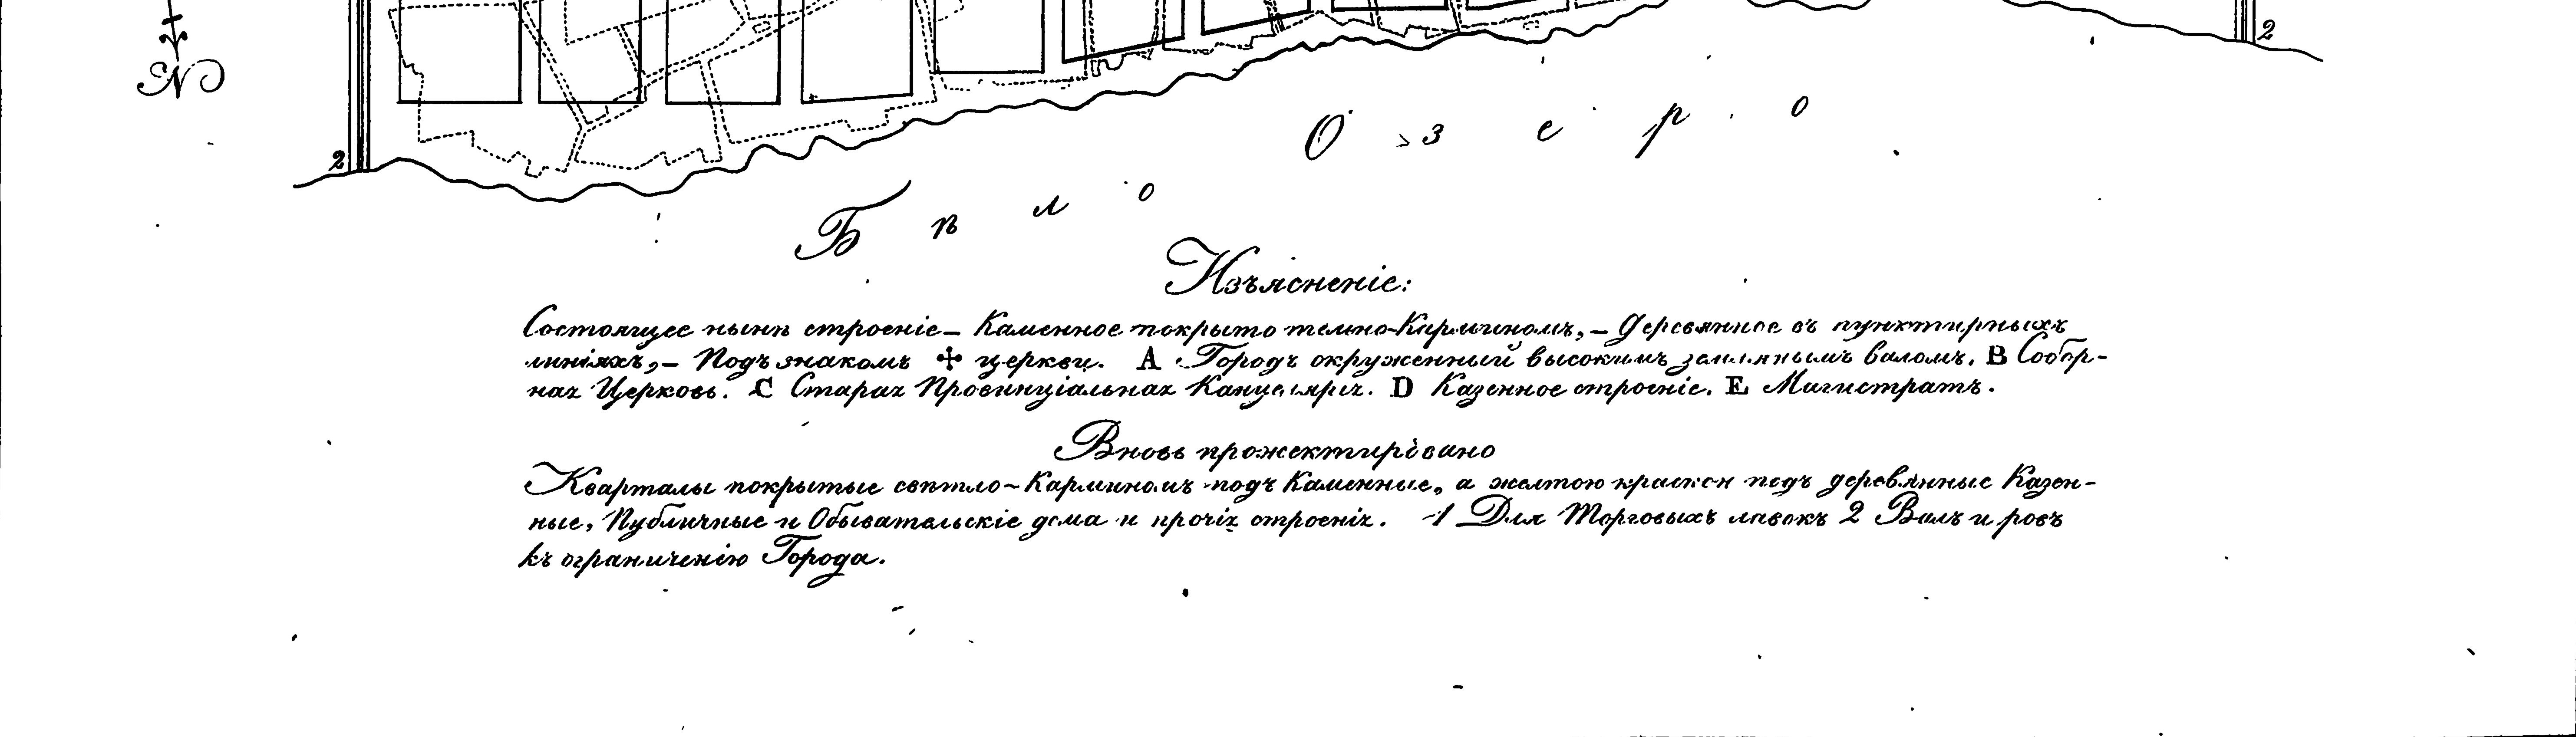 N
2
2
Бѣло Озеро
Изъясненіе:
Состоящее нынѣ строеніе – Каменное покрыто темно-Карминомъ, – Деревянное въ пунктирныхъ
линіяхъ, – Подъ знакомъ ✢ церкви. A Городъ окруженный высокимъ землянымъ валомъ. B Собор-
ная Церковь. C Старая Провинціальная Канцелярія. D Казенное строеніе. E Магистратъ.
Вновь прожектировано
Кварталы покрытые свѣтло-Карминомъ подъ Каменные, а желтою краскою подъ деревянные Казен-
ные, Публичные и Обывательскіе дома и прочія строенія. 1 Для Торговыхъ лавокъ 2 Валъ и ровъ
къ ограниченію Города.